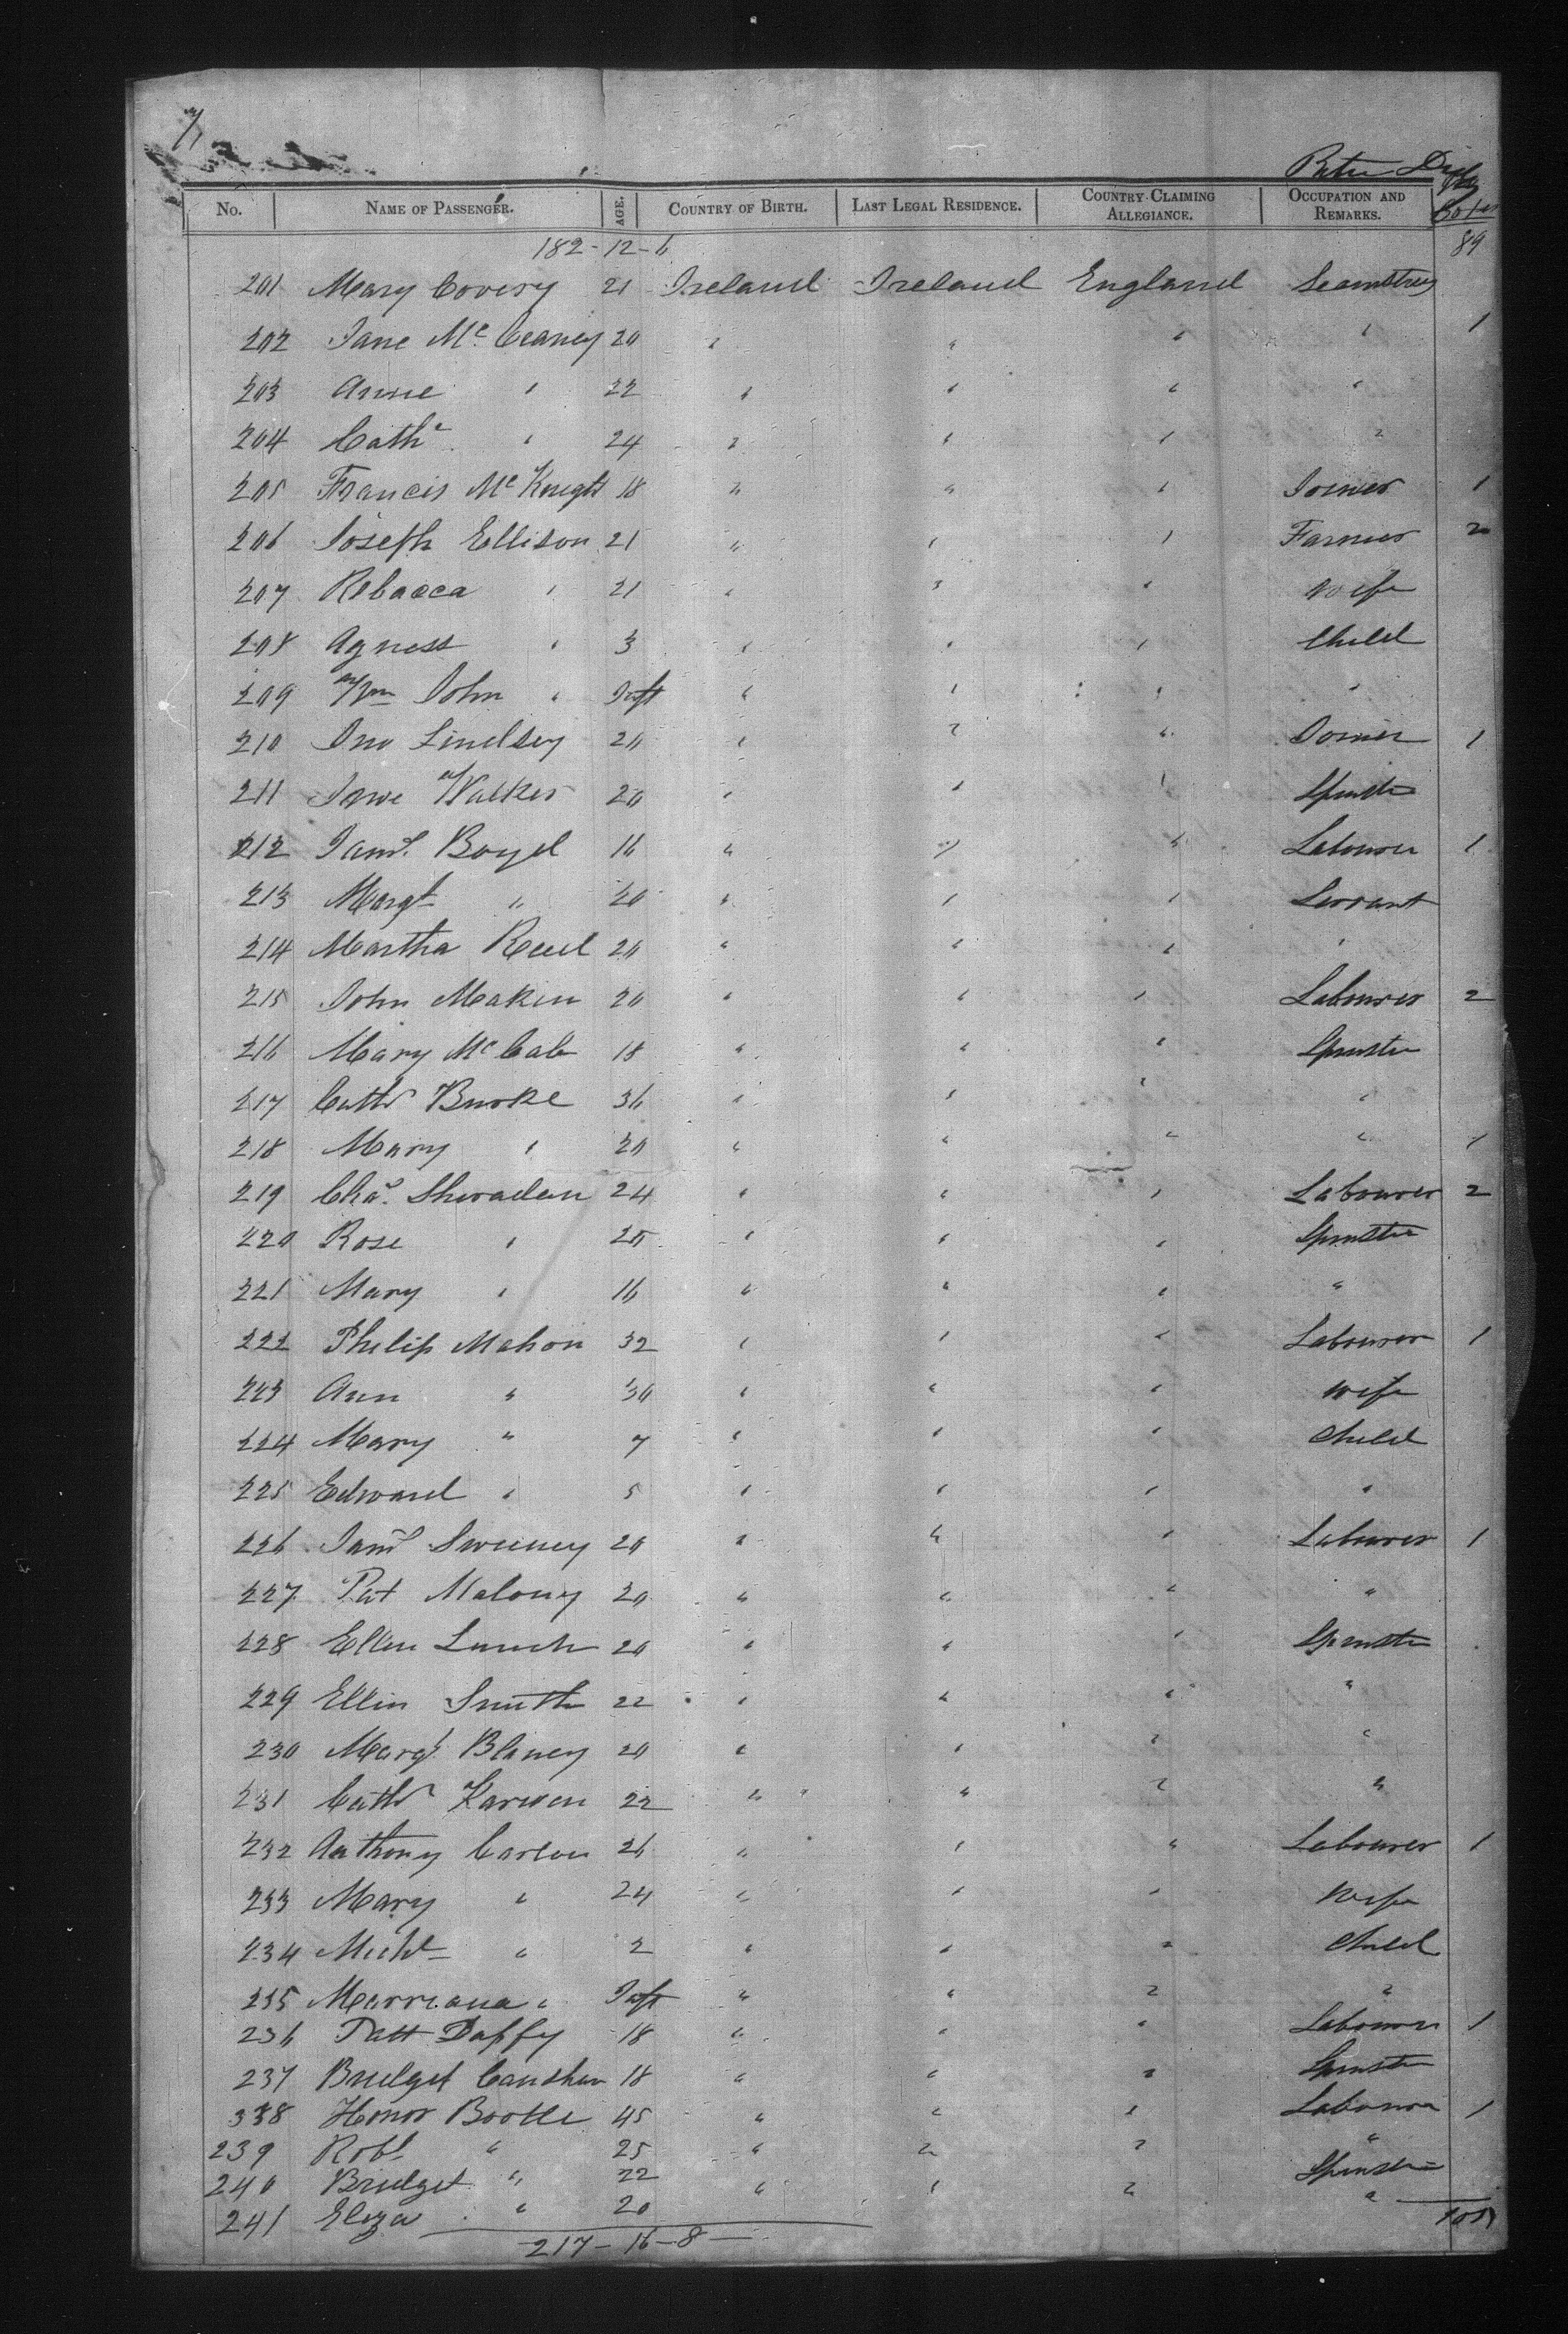 7/
Peter Duffy
No. NAME OF PASSENGER. AGE. COUNTRY OF BIRTH. LAST LEGAL RESIDENCE. COUNTRY CLAIMING ALLEGIANCE. OCCUPATION AND REMARKS. Boxes
182-12-6 89
201 Mary Covery 21 Ireland Ireland England Seamstress
202 Jane Mc Ceaney 20 " " " " 1
203 Annie " 22 " " " "
204 Cathe " 24 " " " "
205 Francis Mc Knight 18 " " " Joiner 1
206 Joseph Ellison 21 " " " Farmer 2
207 Rebacca " 21 " " " Wife
208 Agness " 3 " " " Child
209 Wm John " Inft " " " "
210 Jno Lindsey 20 " " " Joiner 1
211 Jane Walker 20 " " " Spinster
212 Jams Boyd 16 " " " Labourer 1
213 Margt " 20 " " " Servant
214 Martha Reed 20 " " " "
215 John Meakin 20 " " " Labourer 2
216 Mary Mc Cab 18 " " " Spinster
217 Cathe Burke 36 " " " "
218 Mary " 20 " " " " 1
219 Chas Sheradan 24 " " " Labourer 2
220 Rose " 25 " " " Spinster
221 Mary " 16 " " " "
222 Philip Mahon 32 " " " Labourer 1
223 Ann " 30 " " " Wife
224 Mary " 7 " " " Child
225 Edward " 5 " " " "
226 Jams Sweeney 20 " " " Labourer 1
227 Pat Malony 20 " " " "
228 Ellen Lynch 20 " " " Spinster
229 Ellin Smith 22 " " " "
230 Margt Blaney 20 " " " "
231 Cathe Karwen 22 " " " "
232 Anthony Carlon 26 " " " Labourer 1
233 Mary " 24 " " " Wife
234 Michl " 2 " " " Child
235 Marriana " Inft " " " "
236 Patt Daffy 18 " " " Labourer 1
237 Bridget Canshan 18 " " " Spinster
338 Honor Bootle 45 " " " Labourer 1
239 Robt " 25 " " " "
240 Bridget " 22 " " " Spinster
241 Eliza " 20 "
217-16-8